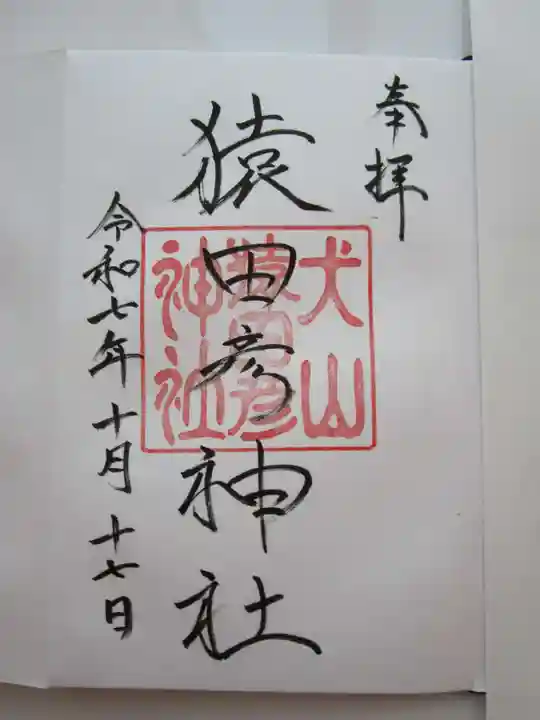 奉拝
猿田彦神社
犬山
猿田彦
神社
令和七年十月十七日